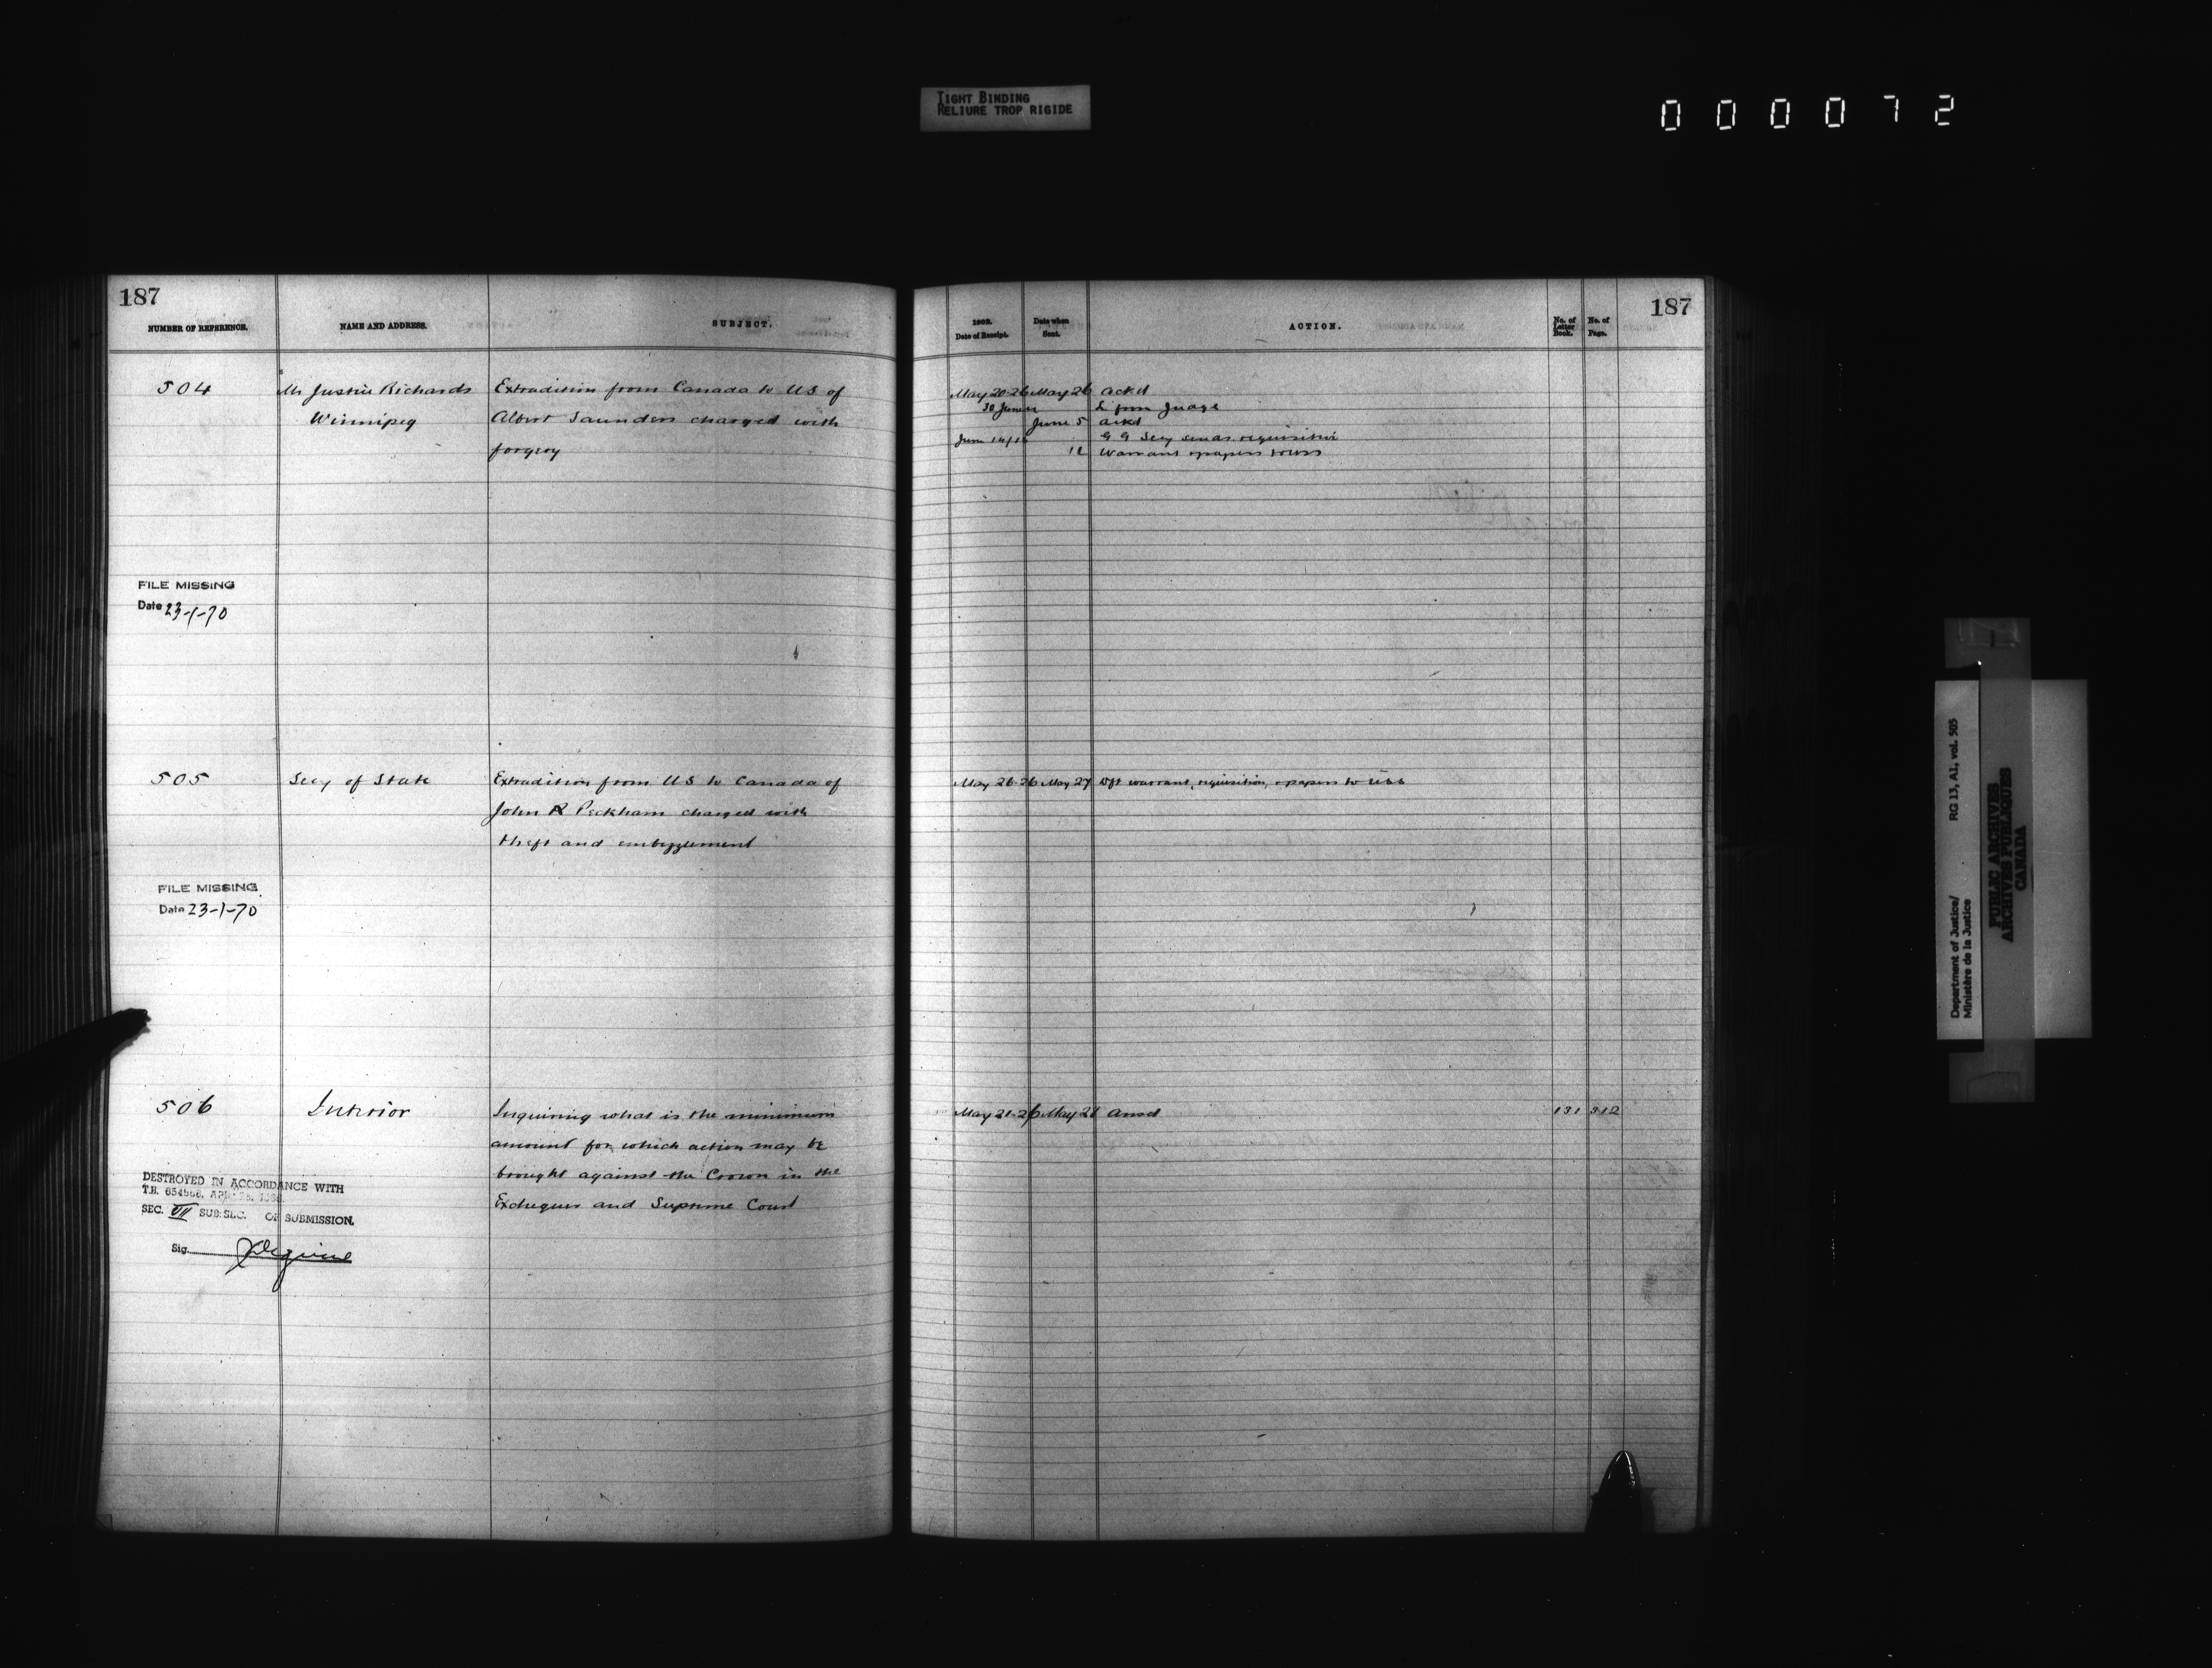 TIGHT BINDING
RELIURE TROP RIGIDE
0 0 0 0 7 2
187
NUMBER OF REFERENCE.
NAME AND ADDRESS.
SUBJECT.
504
Mr Justice Richards
Winnipeg
Extradition from Canada to US of
Albert Saunders charged with
forgery
FILE MISSING
Date 23-1-70
505
Secy of State
Extradition from US to Canada of
John R Peckham charged with
theft and embezzlement
FILE MISSING
Date 23-1-70
506
Interior
Inquiring what is the minimum
amount for which action may be
brought against the Crown in the
Exchequer and Supreme Court
DESTROYED IN ACCORDANCE WITH
T.B.
SEC. VII SUB.SEC. OF SUBMISSION.
Sig.
187
Date of Receipt.
Date when
Sent.
ACTION.
No. of
Letter
Book.
No. of
Page.
May 20-26 May 26 ackd
30 June L from Judge
June 5 ackd
June G G Secy sends requisition
12 Warrant & papers to
May 26-26 May 27 Dft warrant, requisition, & papers to
May 21-26 May 28 Ansd 131 312
Department of Justice/
Ministère de la Justice
RG 13, A1, vol. 505
PUBLIC ARCHIVES
ARCHIVES PUBLIQUES
CANADA